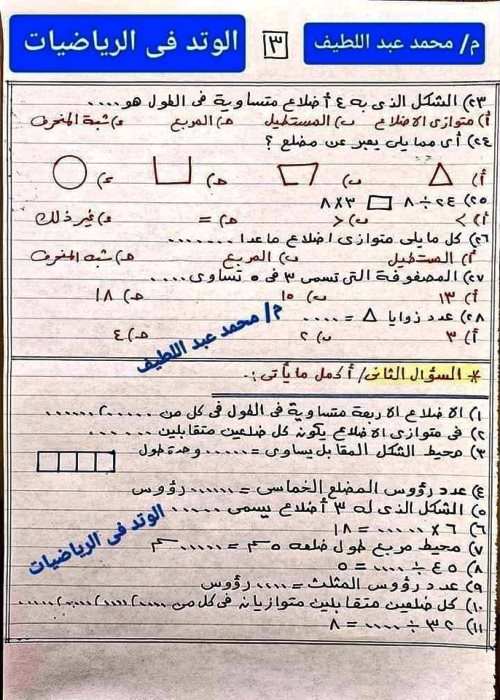 م/ محمد عبد اللطيف
٣
الوتد فى الرياضيات
٢٣) الشكل الذى به ٤ أضلاع متساوية فى الطول هو ....
أ) متوازى الاضلاع ب) المستطيل حـ) المربع د) شبة المنحرف
٢٤) أى مما يلى يعبر عن مضلع ؟
أ) ب) حـ) د)
٢٥) ٢٤ ÷ ٨ ٣ × ٨
أ) > ب) < حـ) = د) غير ذلك
٢٦) كل ما يلى متوازى اضلاع ماعدا .......
أ) المستطيل ب) المربع حـ) شبه المنحرف
٢٧) المصفوفة التى تسمى ٣ فى ٥ تساوى ....
أ) ١٣ ب) ١٥ حـ) ١٨
٢٨) عدد زوايا = ....
أ) ٣ ب) ٢ حـ) ٤
م/ محمد عبد اللطيف
* السؤال الثانى / أكمل ما يأتى :-
١) الاضلاع الاربعة متساوية فى الطول فى كل من ......،......
٢) فى متوازى الاضلاع يكون كل ضلعين متقابلين ......
٣) محيط الشكل المقابل يساوى = ...... وحدة طول
٤) عدد رؤوس المضلع الخماسى = ...... رؤوس
٥) الشكل الذى له ٣ أضلاع يسمى ......
٦) ٦ × ...... = ١٨
٧) محيط مربع طول ضلعه ٥سم = ...... سم
٨) ٤٥ ÷ .... = ٥
٩) عدد رؤوس المثلث = .... رؤوس
١٠) كل ضلعين متقابلين متوازيان فى كل من ....،....،....
١١) ٣٢ ÷ .... = ٨
الوتد فى الرياضيات